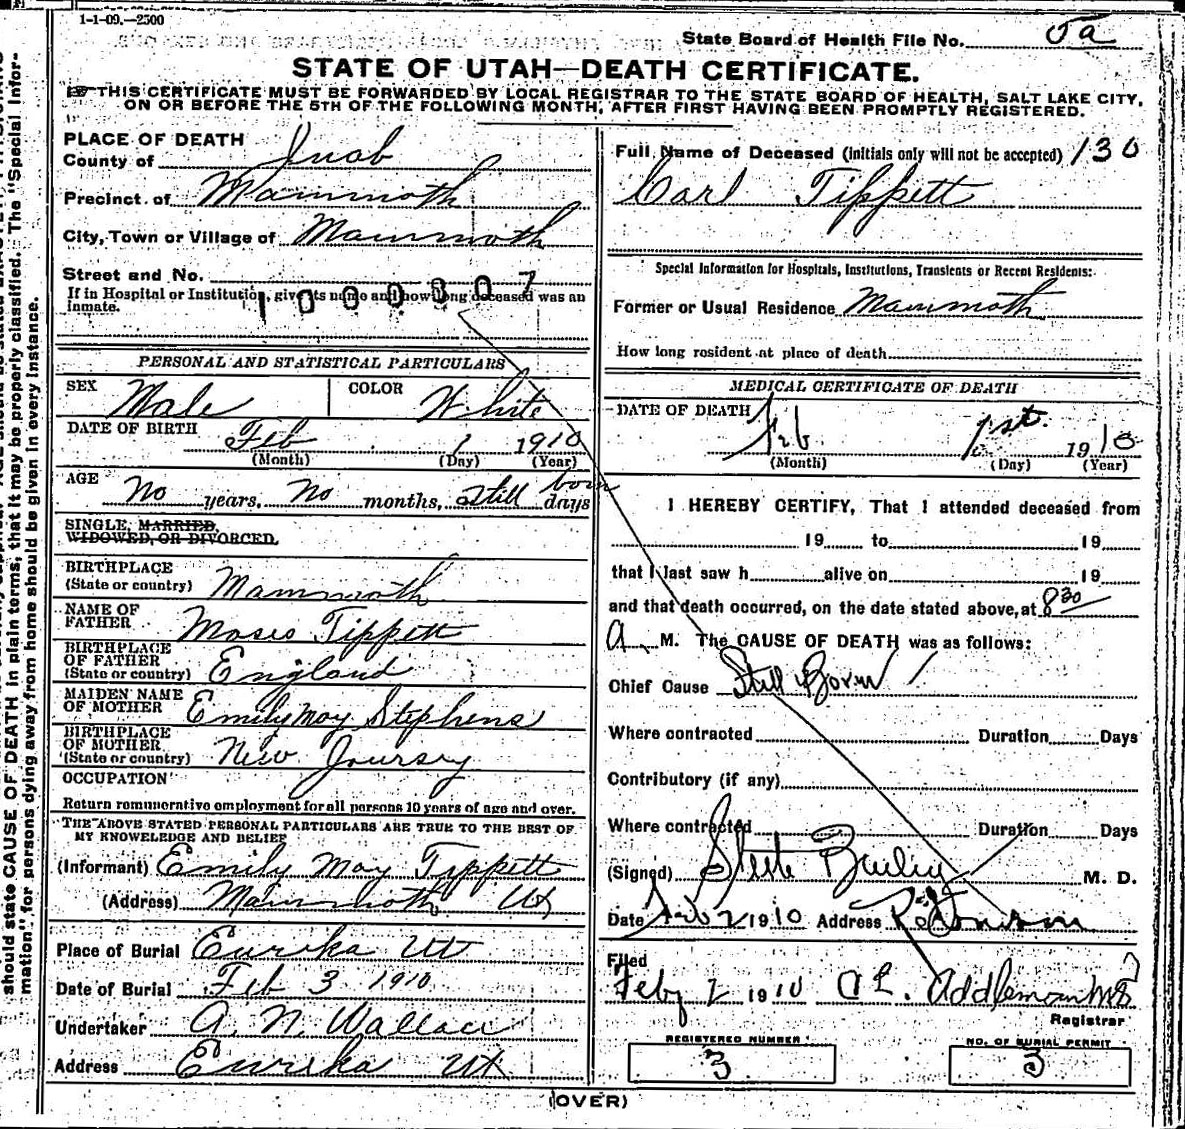 1-1-09.—2500
State Board of Health File No. 5a
STATE OF UTAH—DEATH CERTIFICATE.
THIS CERTIFICATE MUST BE FORWARDED BY LOCAL REGISTRAR TO THE STATE BOARD OF HEALTH, SALT LAKE CITY,
ON OR BEFORE THE 5TH OF THE FOLLOWING MONTH, AFTER FIRST HAVING BEEN PROMPTLY REGISTERED.
PLACE OF DEATH
County of Juab
Precinct of Mammoth
City, Town or Village of Mammoth
Street and No.
If in Hospital or Institution, give its name and how long deceased was an
Inmate.
1000307
PERSONAL AND STATISTICAL PARTICULARS
SEX Male COLOR White
DATE OF BIRTH Feb 1 1910
(Month) (Day) (Year)
AGE No years, No months, still born days
SINGLE, MARRIED,
WIDOWED, OR DIVORCED.
BIRTHPLACE
(State or country) Mammoth
NAME OF
FATHER Moses Tippett
BIRTHPLACE
OF FATHER
(State or country) England
MAIDEN NAME
OF MOTHER Emily May Stephens
BIRTHPLACE
OF MOTHER
(State or country) New Joursey
OCCUPATION
Return remunerative employment for all persons 10 years of age and over.
THE ABOVE STATED PERSONAL PARTICULARS ARE TRUE TO THE BEST OF
MY KNOWLEDGE AND BELIEF
(Informant) Emily May Tippett
(Address) Mammoth Ut
Place of Burial Eureka Ut
Date of Burial Feb 3 1910
Undertaker A. N. Wallace
Address Eureka Ut
Full Name of Deceased (initials only will not be accepted) 130
Carl Tippett
Special Information for Hospitals, Institutions, Transients or Recent Residents:
Former or Usual Residence Mammoth
How long resident at place of death
MEDICAL CERTIFICATE OF DEATH
DATE OF DEATH Feb 1st. 1910
(Month) (Day) (Year)
I HEREBY CERTIFY, That I attended deceased from
19 to 19
that I last saw h alive on 19
and that death occurred, on the date stated above, at 830
A M. The CAUSE OF DEATH was as follows:
Chief Cause Still Born
Where contracted Duration Days
Contributory (if any)
Where contracted Duration Days
(Signed) Steele Bailey M. D.
Date Feb 2 1910 Address
Filed
Feby 2 1910 A L. Addleman MD
Registrar
REGISTERED NUMBER
3
NO. OF BURIAL PERMIT
3
(OVER)
should state CAUSE OF DEATH in plain terms, that it may be properly classified. The "Special Infor-
mation" for persons dying away from home should be given in every instance.